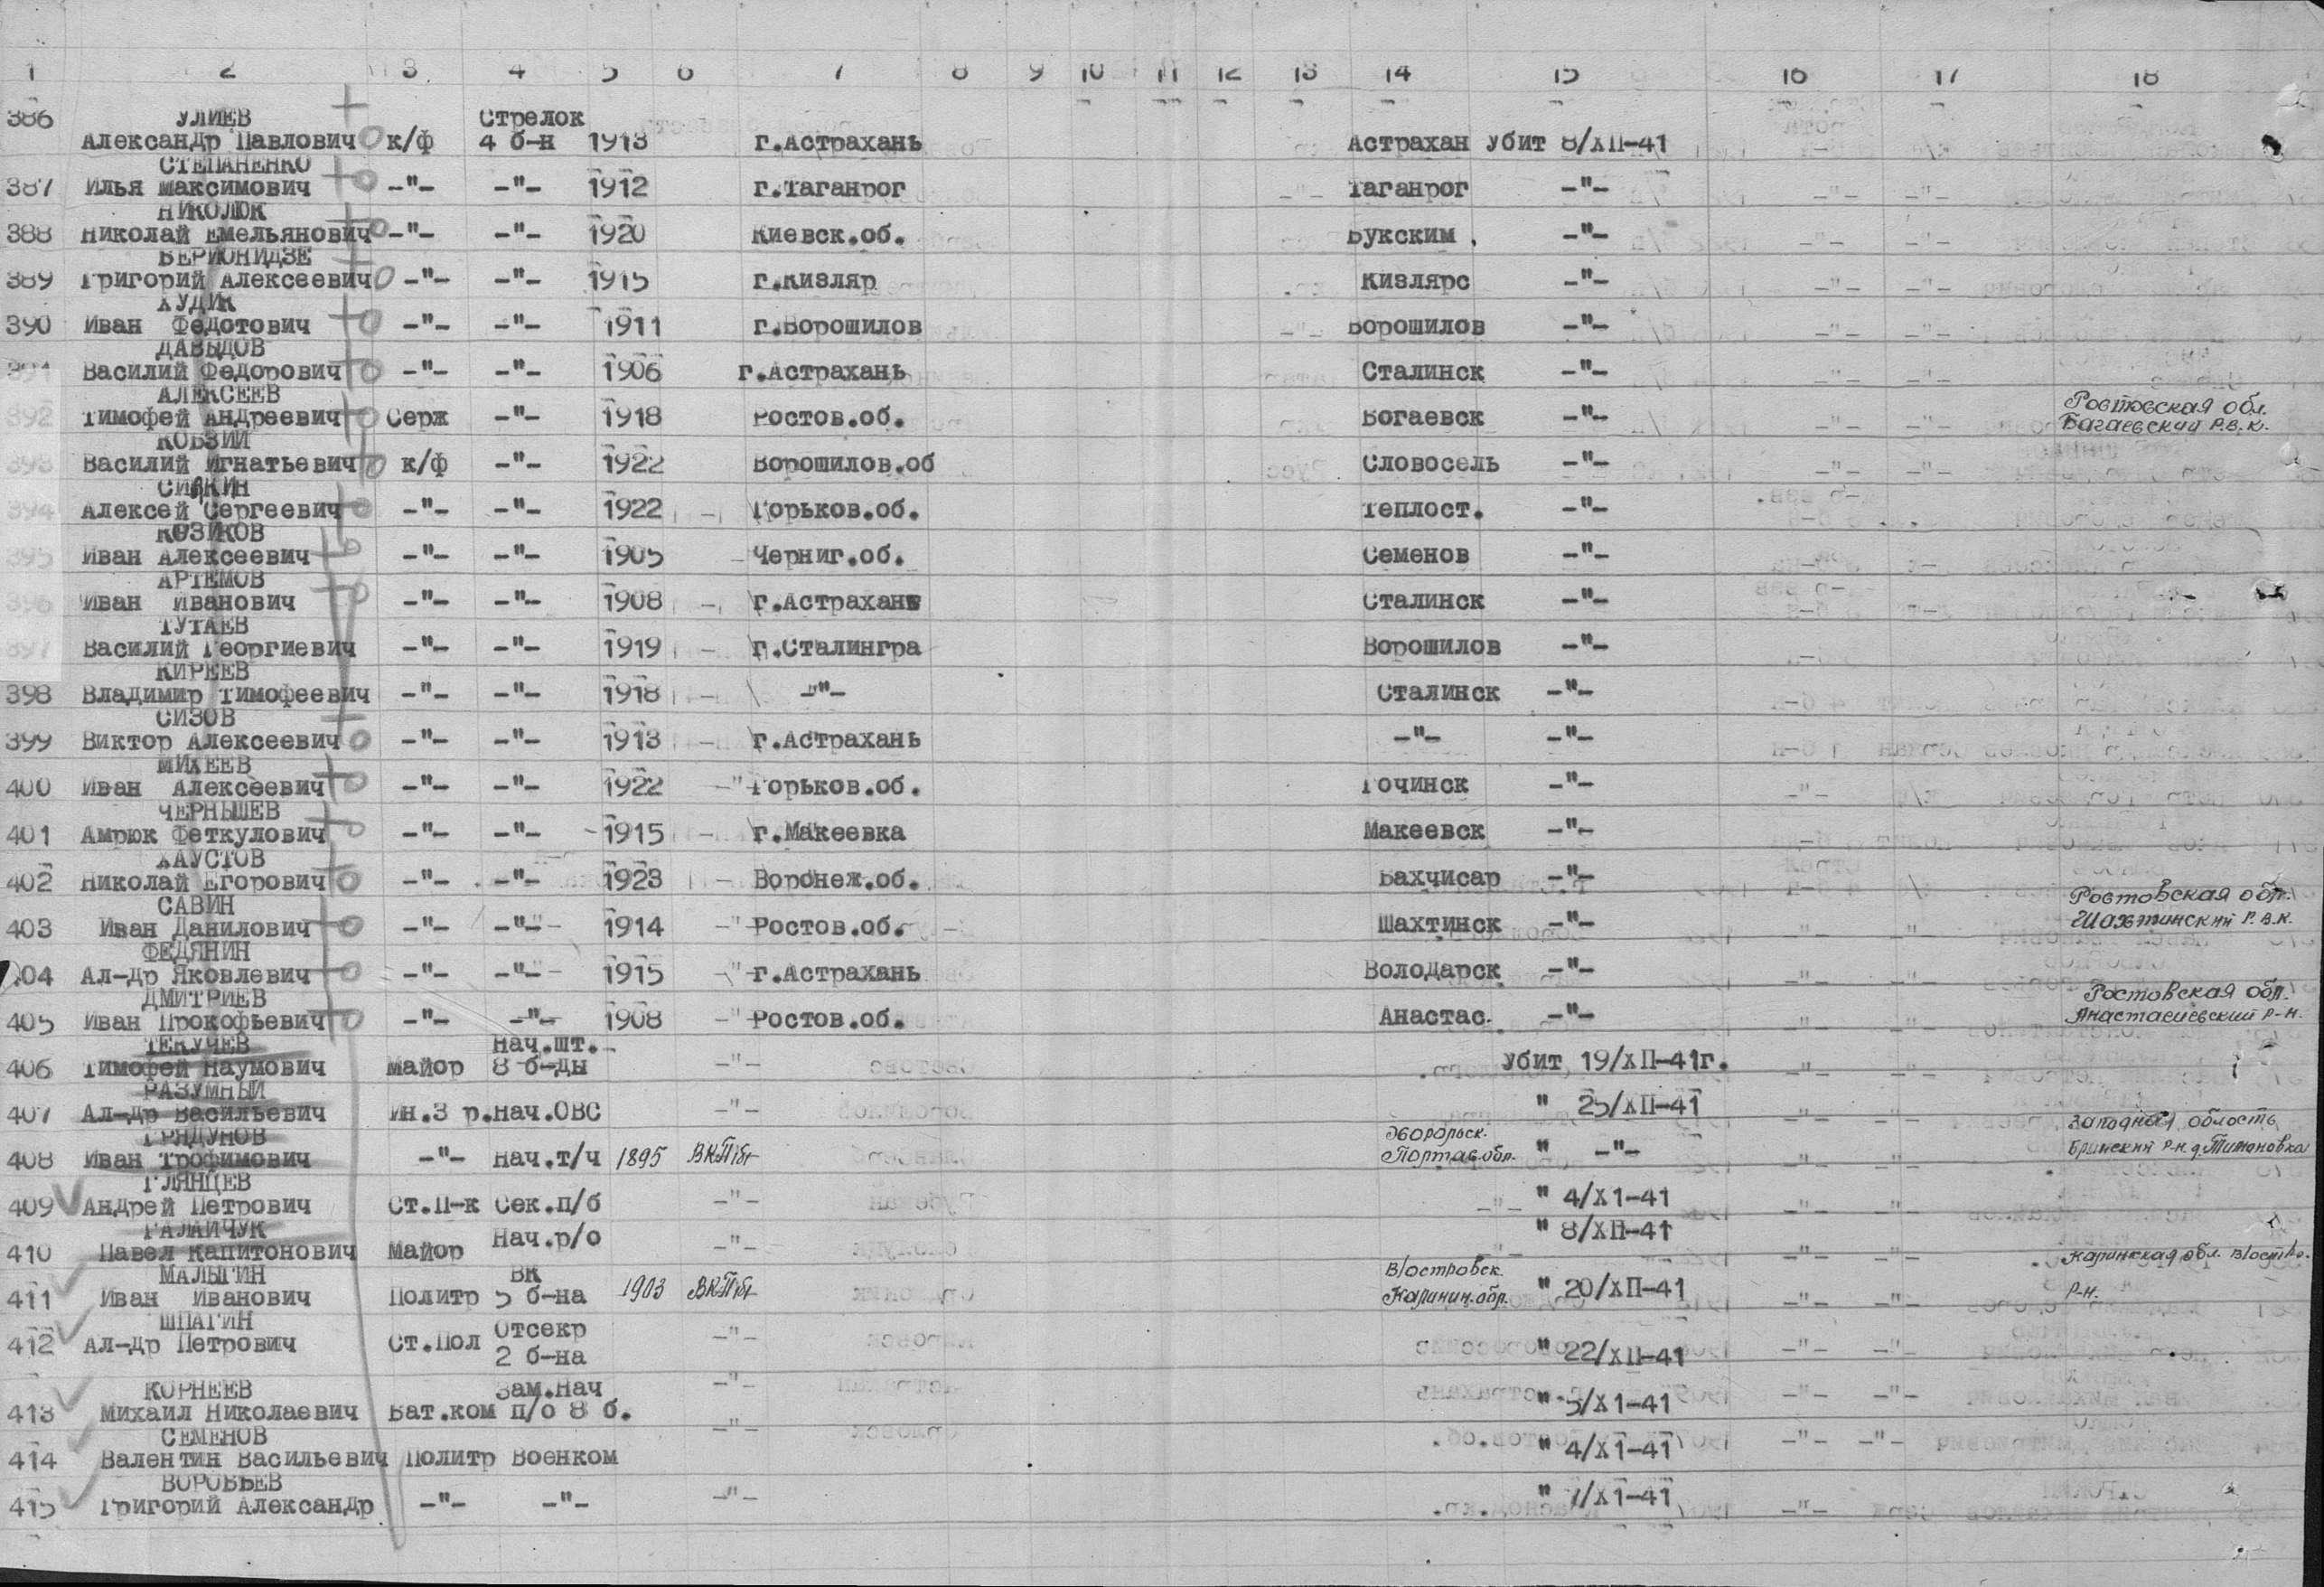 1 2 3 4 5 6 7 8 9 10 11 12 13 14 15 16 17 18
386 УЛИЕВ Стрелок
Александр Павлович к/ф 4 б-н 1913 г.Астрахань Астрахан Убит 8/ХП-41
СТЕПАНЕНКО
387 Илья Максимович -"- -"- 1912 г.Таганрог Таганрог -"-
НИКОЛЮК
388 Николай Емельянович -"- -"- 1920 Киевск.об. Букским -"-
БЕРИОНИДЗЕ
389 Григорий Алексеевич -"- -"- 1915 г.Кизляр Кизлярс -"-
ХУДИК
390 Иван Федотович -"- -"- 1911 г.Ворошилов Ворошилов -"-
ДАВЫДОВ
391 Василий Федорович -"- -"- 1906 г.Астрахань Сталинск -"-
АЛЕКСЕЕВ Ростовская обл.
392 Тимофей Андреевич Серж -"- 1918 Ростов.об. Богаевск -"- Багаевский Р.В.К.
КОБЗИЙ
393 Василий Игнатьевич к/ф -"- 1922 Ворошилов.об Словосель -"-
СИЛКИН
394 Алексей Сергеевич -"- -"- 1922 Горьков.об. Теплост. -"-
КОЗИКОВ
395 Иван Алексеевич -"- -"- 1905 Черниг.об. Семенов -"-
АРТЕМОВ
396 Иван Иванович -"- -"- 1908 г.Астрахань Сталинск -"-
ТУТАЕВ
397 Василий Георгиевич -"- -"- 1919 г.Сталингра Ворошилов -"-
КИРЕЕВ
398 Владимир Тимофеевич -"- -"- 1918 -"- Сталинск -"-
СИЗОВ
399 Виктор Алексеевич -"- -"- 1913 г.Астрахань -"- -"-
МИХЕЕВ
400 Иван Алексеевич -"- -"- 1922 Горьков.об. Точинск -"-
ЧЕРНЫШЕВ
401 Амрюк Феткулович -"- -"- 1915 г.Макеевка Макеевск -"-
ХАУСТОВ
402 Николай Егорович -"- -"- 1923 Воронеж.об. Бахчисар -"-
САВИН Ростовская обл.
403 Иван Данилович -"- -"- 1914 Ростов.об. Шахтинск -"- Шахтинский Р.В.К.
ФЕДЯНИН
404 Ал-др Яковлевич -"- -"- 1915 г.Астрахань Володарск -"-
ДМИТРИЕВ Ростовская обл.
405 Иван Прокофьевич -"- -"- 1908 Ростов.об. Анастас. -"- Анастасиевский р-н.
ТЕКУЧЕВ Нач.шт.
406 Тимофей Наумович Майор 8 б-ды -"- Убит 19/ХП-41г.
РАЗУМНЫЙ
407 Ал-др Васильевич Ин.3 р. Нач.ОВС -"- " 25/ХП-41
ГРЯДУНОВ Западная область
408 Иван Трофимович -"- Нач.т/ч 1895 ВКПбг Полтав.обл. " -"- Брянский р-н д.Тимановка
ГЛЯНЦЕВ
409 Андрей Петрович Ст.П-к Сек.п/б -"- " 4/Х1-41
ГАЛАЙЧУК
410 Павел Капитонович Майор Нач.р/о -"- " 8/ХП-41 Калинская обл. В/оство.
МАЛЫГИН ВК В/островск.
411 Иван Иванович Политр 5 б-на 1903 ВКПбг Калинин.обл. " 20/ХП-41 р-н.
ШПАГИН Отсекр
412 Ал-др Петрович Ст.Пол 2 б-на -"- " 22/ХП-41
КОРНЕЕВ Зам.Нач -"-
413 Михаил Николаевич Бат.ком п/о 8 б. " 5/Х1-41
СЕМЕНОВ -"-
414 Валентин Васильевич Политр Военком " 4/Х1-41
ВОРОБЬЕВ
415 Григорий Александр -"- -"- -"- " 7/Х1-41